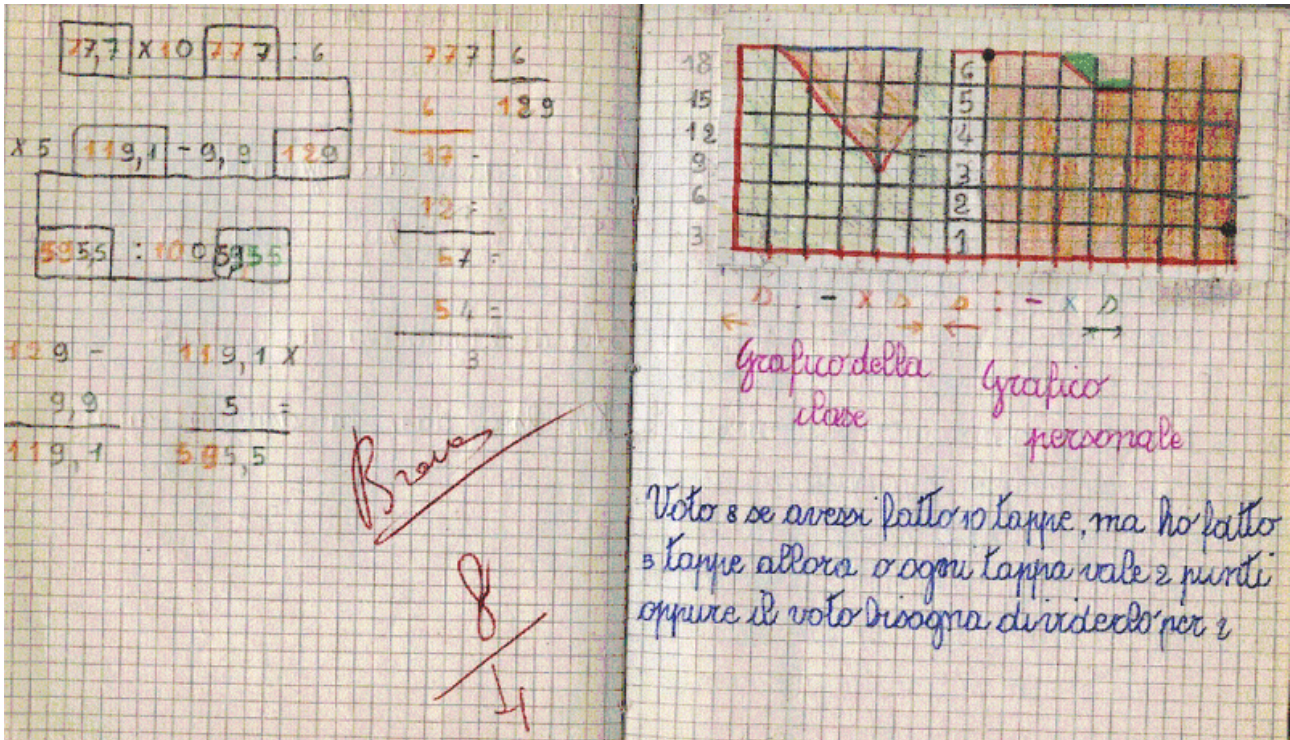 77,7 x 10 777 : 6
x 5 119,1 - 9,9 129
595,5 : 100 5,955
129 -
9,9
119,1
119,1 x
5 =
595,5
777 6
6 129
17 -
12 =
57 =
54 =
3
Brava
8
18
15
12
9
6
3
6
5
4
3
2
1
s : - x s s : - x s
Grafico della
classe
Grafico
personale
Voto 8 se avessi fatto 10 tappe, ma ho fatto
5 tappe allora o ogni tappa vale 2 punti
oppure il voto bisogna dividerlo per 2